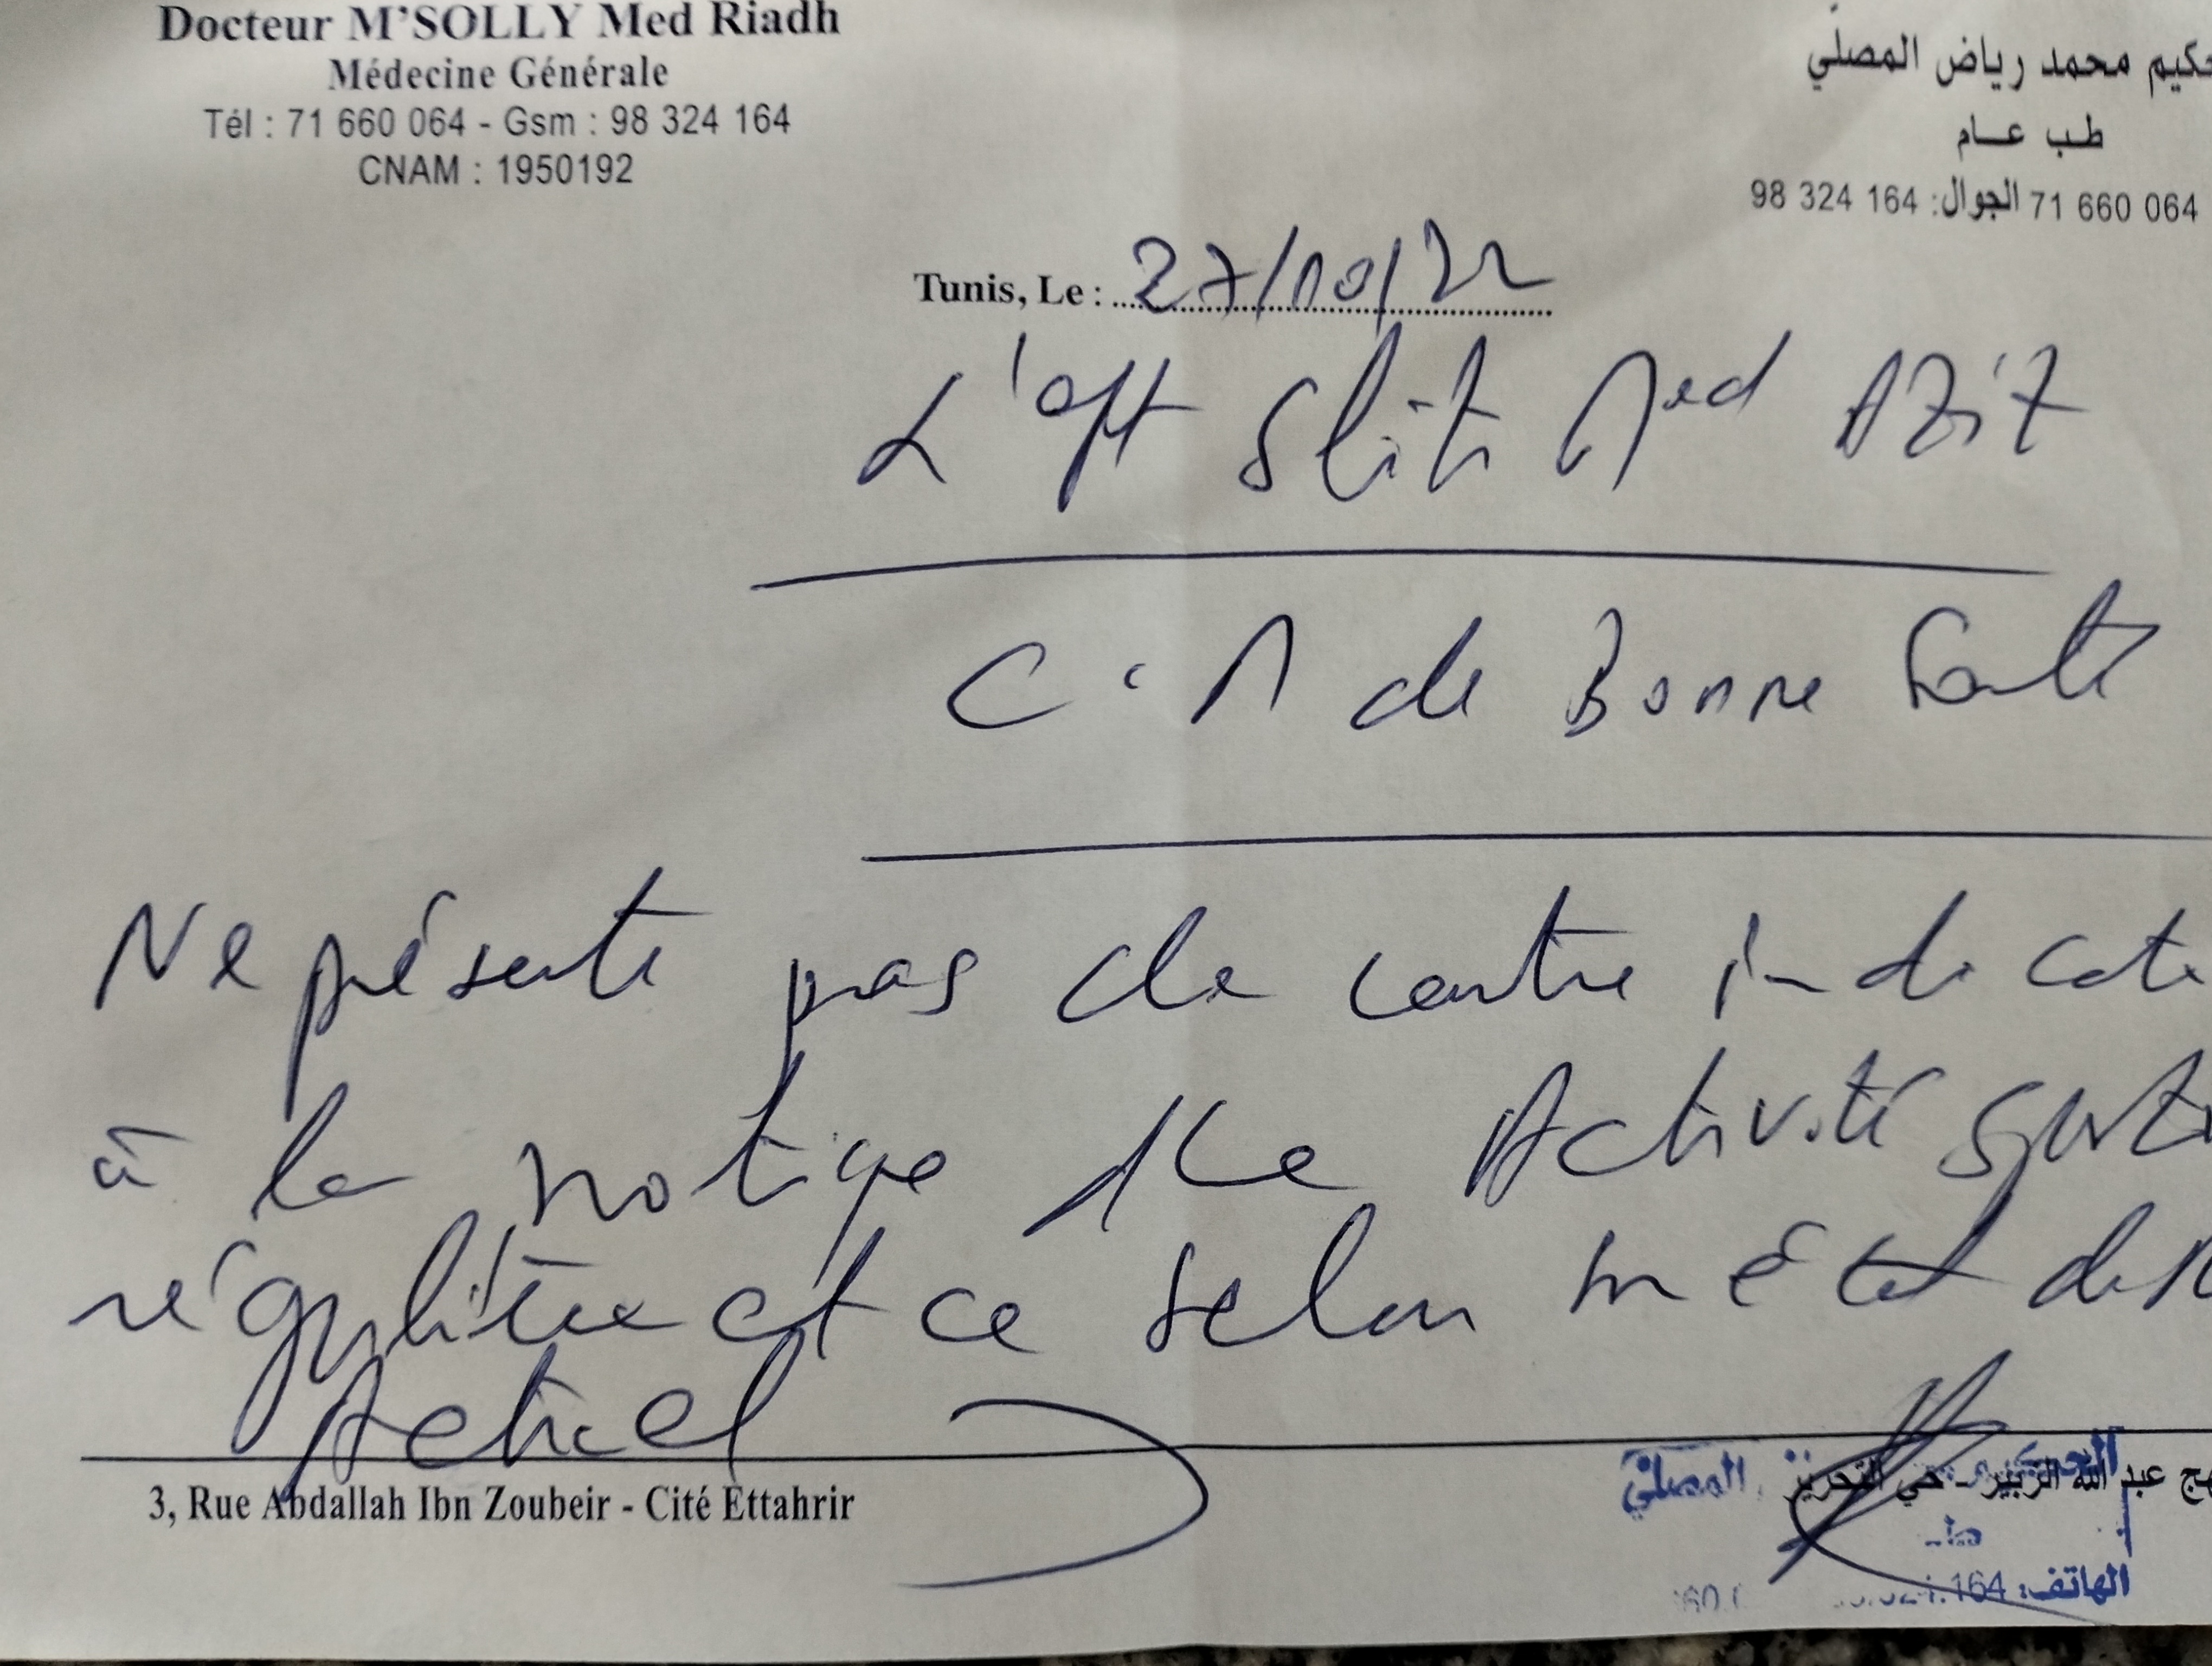 Docteur M'SOLLY Med Riadh
Médecine Générale
Tél : 71 660 064 - Gsm : 98 324 164
CNAM : 1950192
محمد رياض المصلي
طب عام
71 660 064 الجوال: 98 324 164
Tunis, Le : 27/10/22
L'eft Sliti Med Aziz
C.M de Bonne Santé
Ne présente pas de contre indicati
à la pratique de Activité sporti
régulière et ce selon son état de
Actuel
3, Rue Abdallah Ibn Zoubeir - Cité Ettahrir
عبد الله الزبير - حي التحرير
المصلي
الهاتف: